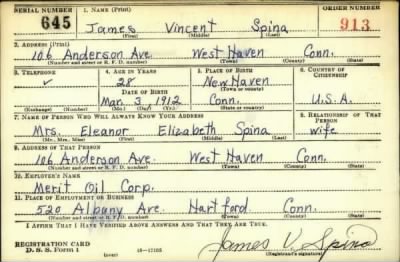 SERIAL NUMBER 1. NAME (Print) ORDER NUMBER
645 James Vincent Spina 913
(First) (Middle) (Last)
2. ADDRESS (Print)
106 Anderson Ave. West Haven Conn.
(Number and street or R. F. D. number) (Town) (County) (State)
3. TELEPHONE 4. AGE IN YEARS 5. PLACE OF BIRTH 6. COUNTRY OF CITIZENSHIP
✓ 28 New Haven
DATE OF BIRTH (Town or county)
Mar. 3 1912 Conn. U.S.A.
(Exchange) (Number) (Mo.) (Day) (Yr.) (State or country)
7. NAME OF PERSON WHO WILL ALWAYS KNOW YOUR ADDRESS 8. RELATIONSHIP OF THAT PERSON
Mrs. Eleanor Elizabeth Spina wife
(Mr., Mrs., Miss) (First) (Middle) (Last)
9. ADDRESS OF THAT PERSON
106 Anderson Ave. West Haven Conn.
(Number and street or R. F. D. number) (Town) (County) (State)
10. EMPLOYER'S NAME
Merit Oil Corp.
11. PLACE OF EMPLOYMENT OR BUSINESS
520 Albany Ave. Hartford Conn.
(Number and street or R. F. D. number) (Town) (County) (State)
I AFFIRM THAT I HAVE VERIFIED ABOVE ANSWERS AND THAT THEY ARE TRUE.
REGISTRATION CARD
D. S. S. Form 1 (over) James V. Spina
(Registrant's signature)